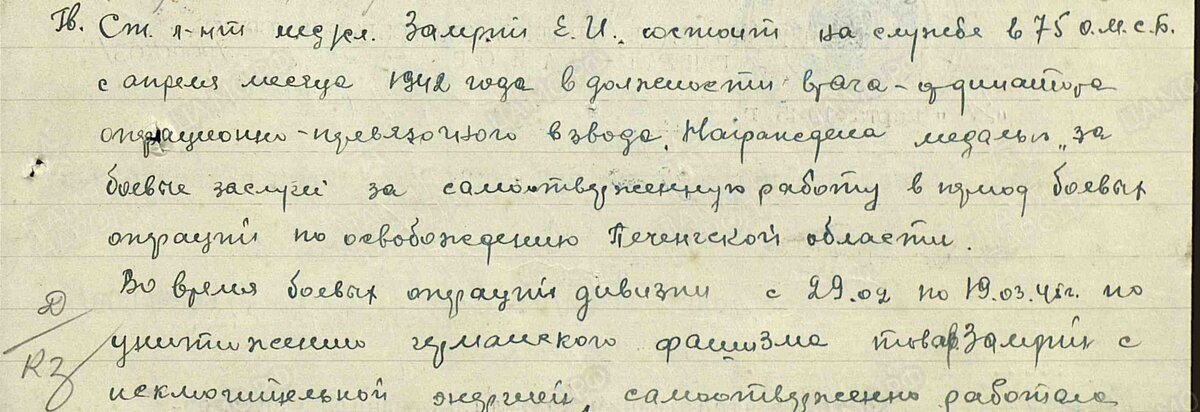 Гв. Ст. л-нт мед.сл. Замрий Е.И. состоит на службе в 75 о.м.с.б.
с апреля месяца 1942 года в должности врача-ординатора
операционно-перевязочного взвода. Награждена медалью „за
боевые заслуги за самоотверженную работу в период боевых
операций по освобождению Печенгской области.
Во время боевых операций дивизии с 29.02 по 19.03.45г. по
уничтожению германского фашизма товар. Замрий с
исключительной энергией, самоотверженно работала